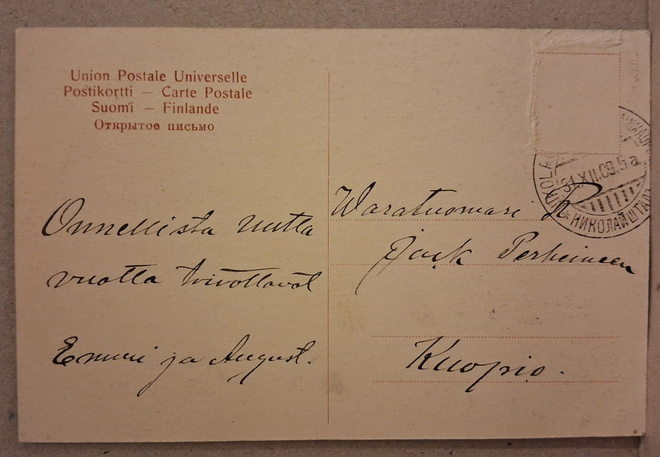 Union Postale Universelle
Postikortti — Carte Postale
Suomi — Finlande
Открытое письмо
Onnellista Uutta
vuotta toivottavat
Emmi ja August.
Waratuomari
Jack Perheineen
Kuopio.
NIKOLAI
31.XII.09.5a
НИКОЛАЙШТАДТ